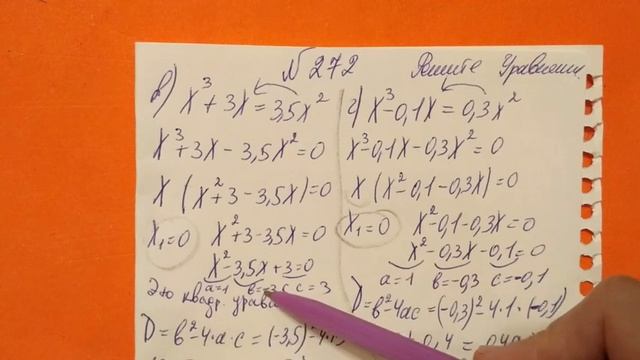 N 272 Решите Уравнения
в) x³ + 3x = 3,5x²
x³ + 3x - 3,5x² = 0
x (x² + 3 - 3,5x) = 0
x₁ = 0 x² + 3 - 3,5x = 0
x² - 3,5x + 3 = 0
a = 1 в = -3,5 c = 3
Это квадр.
D = в² - 4·a·c = (-3,5)² - 4·1
г) x³ - 0,1x = 0,3x²
x³ - 0,1x - 0,3x² = 0
x (x² - 0,1 - 0,3x) = 0
x₁ = 0 x² - 0,1 - 0,3x = 0
x² - 0,3x - 0,1 = 0
a = 1 в = -0,3 c = -0,1
D = в² - 4ac = (-0,3)² - 4·1·(-0,1)